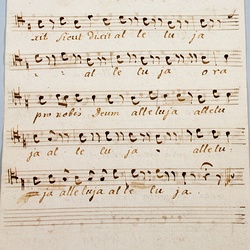 xit sicut dixit al le lu ja
al le lu ja ora
pro nobis Deum alleluja allelu
ja al le lu ja allelu:
ja alleluja al le lu ja.